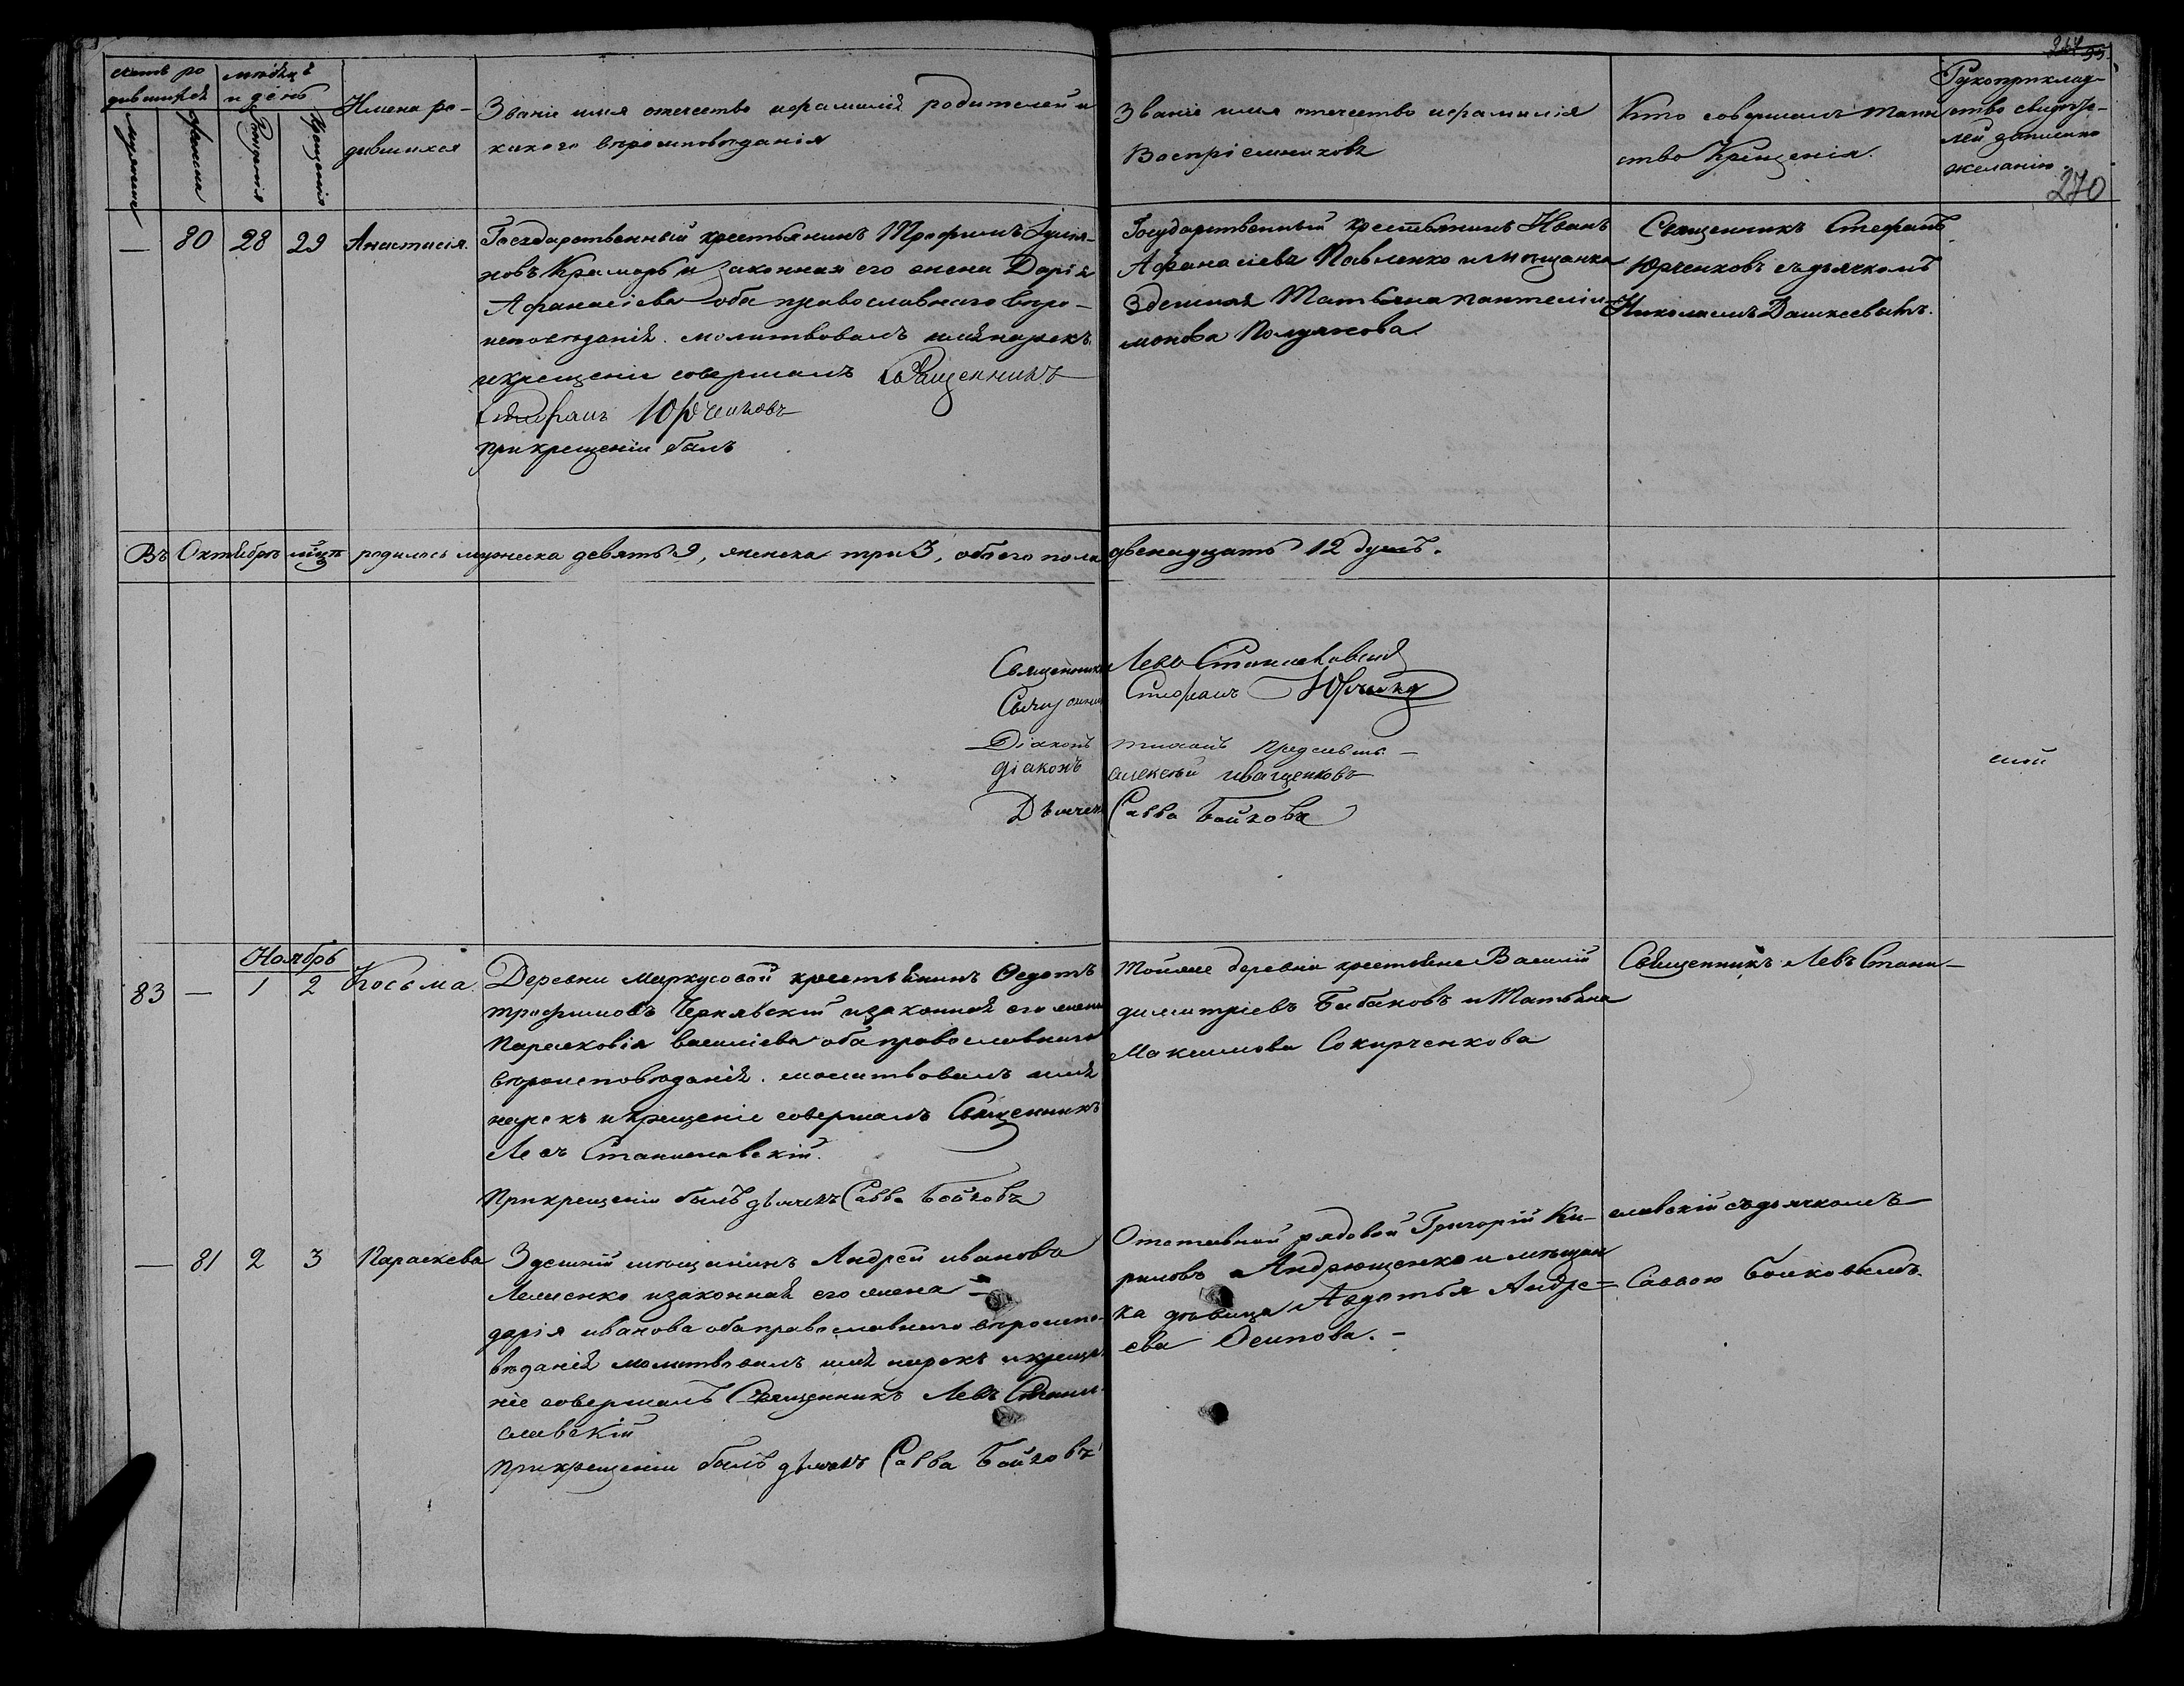 Счетъ ро
дившихся
мѣсяцъ
и день
мужеска
женска
Рожденія
Крещенія
Имена ро-
дившихся
Званіе имя отчество ифамилія родителей и
какого вѣроисповѣданія
Званіе имя отчество ифамилія
Воспріемниковъ
Кто совершалъ таин
ство Крещенія.
Рукоприклад-
ство свидѣте-
лей записано
желанію
270
— 80 28 29 Анастасія.
Государственный крестьянинъ Трофимъ
новъ Крамарь и Законная его жена Дарія
Афанасіева оба православнаго вѣро-
исповѣданія. молитвовалъ имя нарекъ
икрещеніе совершалъ Священникъ
Стефанъ Юрченковъ
при крещеніи былъ
Государственный крестьянинъ Иванъ
Афанасіевъ Павленко и мѣщанка
Здешная Матьяна пантелеи-
монова Полуянова.
Священникъ Стефанъ
Юрченковъ съдьячкомъ
Николаемъ Дашкевичъ.
Въ Октябрѣ мѣсцѣ родилось мужеска девять 9, женска три 3, обоего пола двенадцать 12 душъ.
Священникъ Левъ Станиславскій
Священникъ Стефанъ Юрченко
Діаконъ
діаконъ алексѣй иващенковъ
Дьячекъ Савва Бойковъ
Ноябрь
83 — 1 2 Косьма.
Деревни Маркусовой крестьянинъ Ѳедотъ
трофимовъ Чернявскій изаконная его жена
Парасковія василіева оба православнаго
вѣроисповѣданія. молитвовалъ имя
нарекъ и крещеніе совершалъ Священникъ
Левъ Станиславскій.
Прикрещеніи былъ дьячекъ Савва Бойковъ
Тойже деревни крестьяне Василій
димитріевъ Бабаковъ и Татьяна
Максимова Сокирченкова
Священникъ Левъ Стани-
славскій съдьячкомъ
Саввою Бойковымъ.
— 81 2 3 Параскева
Здешній мѣщанинъ Андрей ивановъ
Лемешко изаконная его жена —
дарія иванова оба православнаго вѣроиспо-
вѣданія молитвовалъ имя нарекъ икреще-
ніе совершалъ Священникъ Левъ Стани-
славскій
прикрещеніи былъ дьячекъ Савва Бойковъ
Отставной рядовой Григорій Ки-
риловъ Андрющенко и мѣщан
ка дѣвица Авдотья Андре=
ева Осипова. —